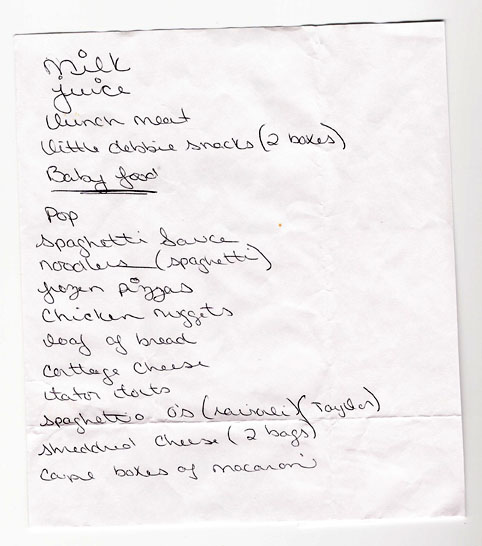 milk
juice
lunch meat
little debbie snacks (2 boxes)
Baby food
Pop
spaghetti Sauce
noodles (spaghetti)
frozen pizzas
Chicken nuggets
loaf of bread
cottage cheese
tator tots
spaghetti o's (ravioli) (Taylor)
shredded cheese (2 bags)
boxes of macaroni